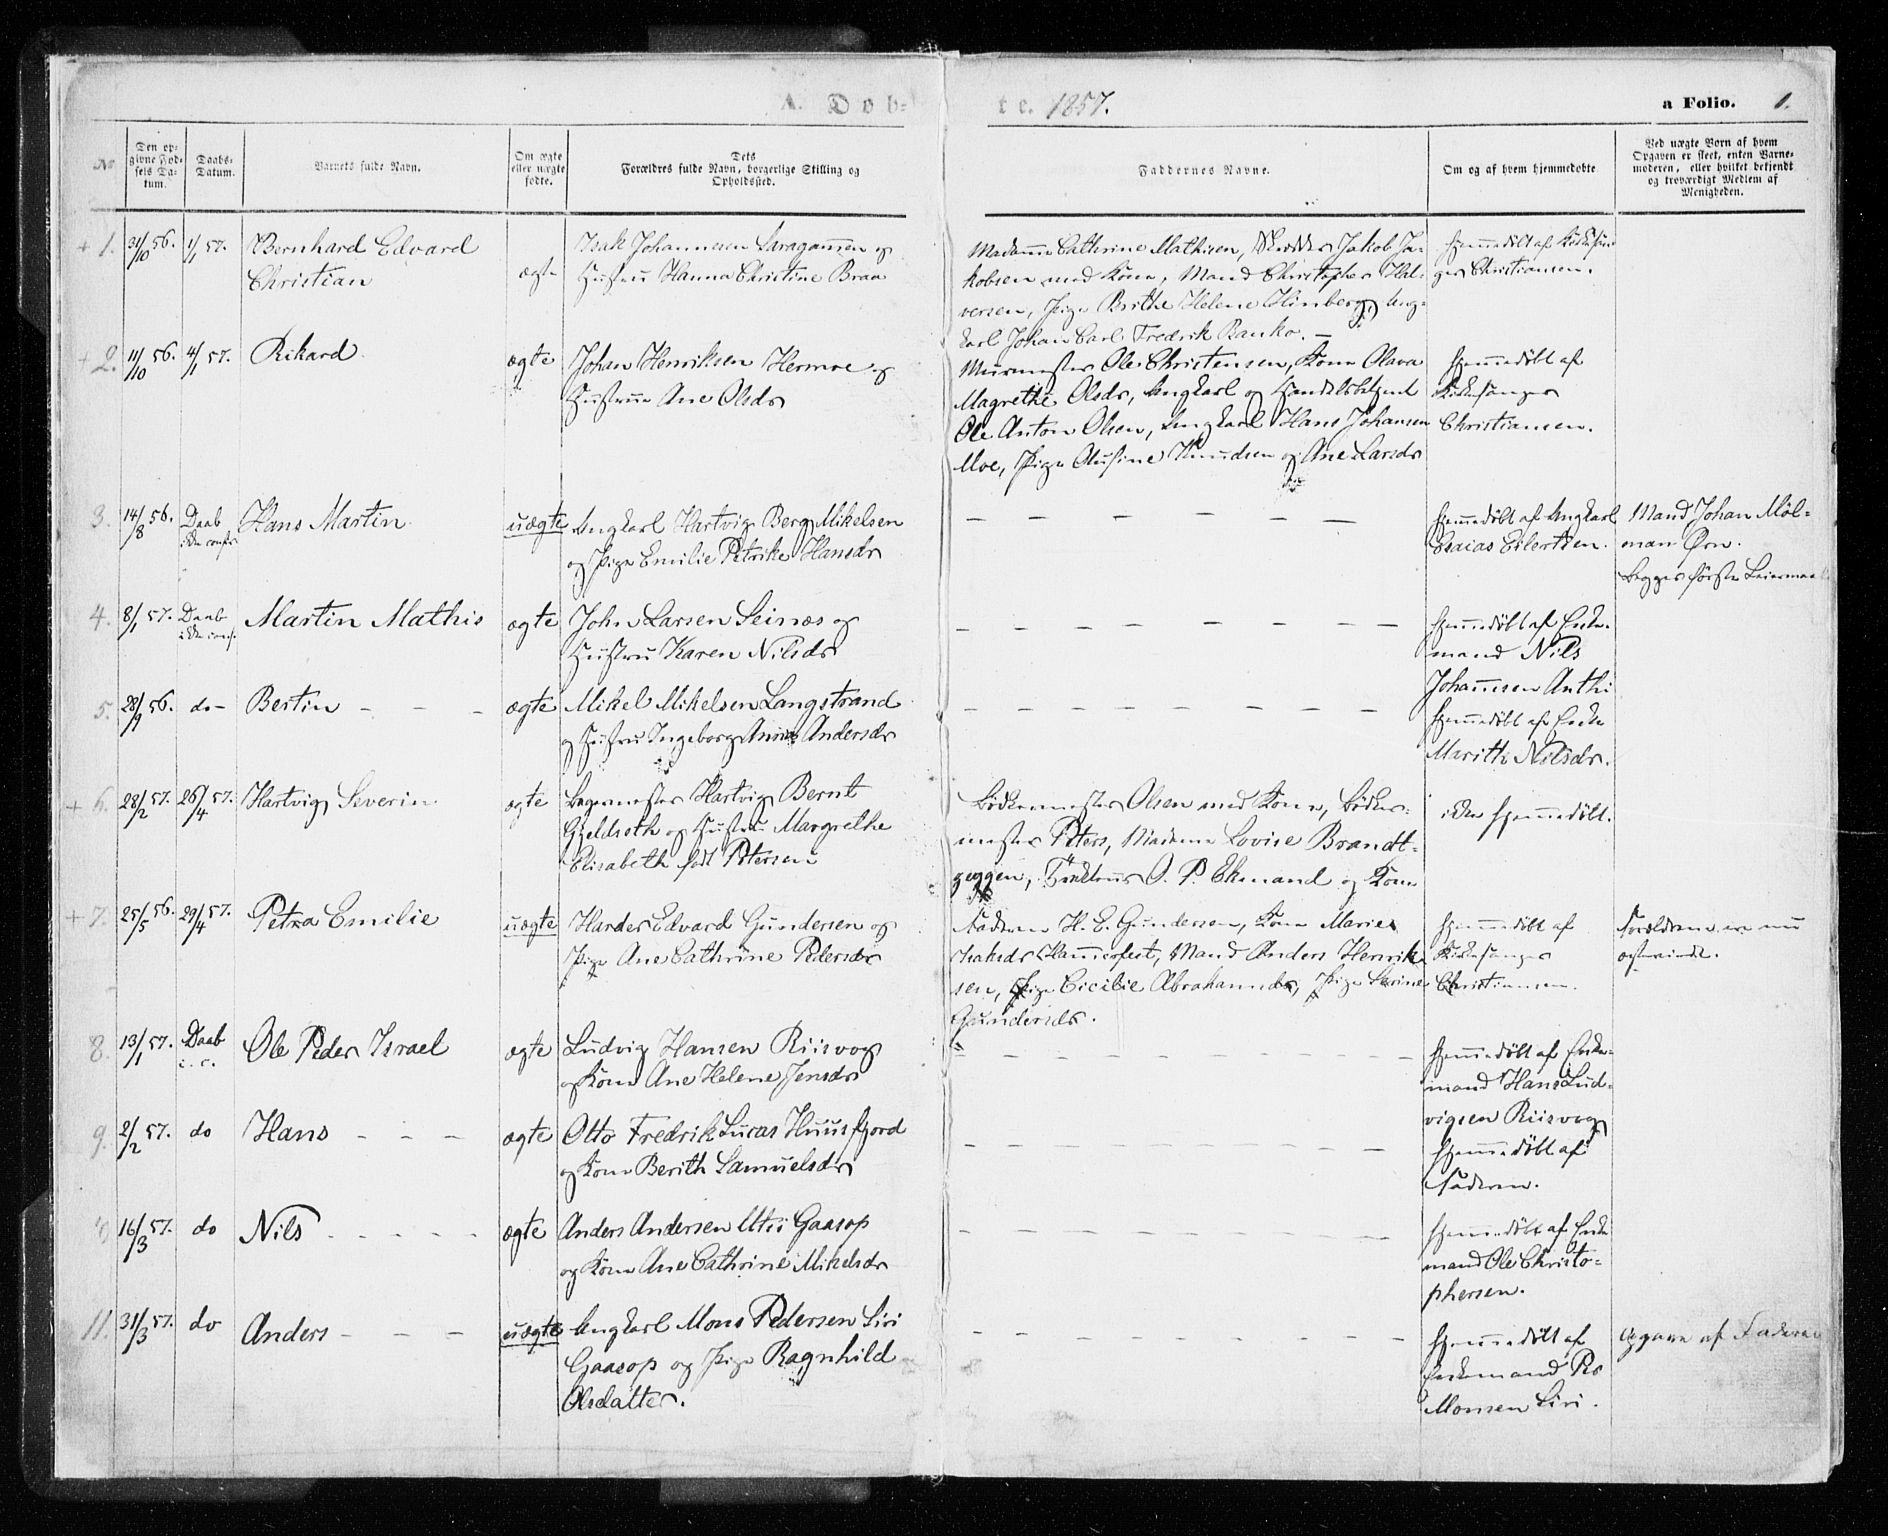 A. Døb-
te. 1857.
a Folio. 1.
No
Den op-
givne Fød-
sels Da-
tum.
Daabs-
Datum.
Barnets fulde Navn.
Om ægte
eller uægte
fødte.
Dets
Forældres fulde Navn, borgerlige Stilling og
Opholdssted.
Faddernes Navne.
Om og af hvem hjemmedøbte
Ved uægte Børn af hvem
Opgaven er skeet, enten Barne-
moderen, eller hvilket bekjendt
og troværdigt Medlem af
Menigheden.
+ 1. 31/10 56. 1/1 57. Bernhard Edvard
Christian
ægte
Isak Johannesen Saragammen og
Hustru Hanna Christine Braa
Madamme Cathrine Mathisen, Skrædder Jakob Ja-
kobsen med Kone, Mand Christopher Hal-
versen, Pige Brithe Helene Hinberg, Ung-
karl Johan Carl Fredrik Banko. —
Hjemmedøbt af Kirkesan
ger Christiansen.
+ 2. 11/10 56. 4/1 57. Rikard
ægte
Johan Henriksen Hermoe og
Hustrue Ane Olsdr
Murmester Ole Christensen, Kone Olava
Magrethe Olsdr, Ungkarl og Handelsbetjent
Ole Anton Olsen, Ungkarl Hans Johansen
Moe, Pige Olufine Knudsen og Ane Larsdr
Hjemmedøbt af
Kirkesanger
Christiansen.
3. 14/8 56. Daab
ikke confr
Hans Martin
uægte
Ungkarl Hartvig Berg Mikelsen
og Pige Emilie Petrike Hansdr
— — — — — — —
Hjemmedøbt af Ungkarl
Esaias Eilertsen.
Mand Johan Möl-
man Örn.
Begges første Leiermaal
4. 8/1 57. Daab
ikke conf.
Martin Mathis
ægte
John Larsen Seinæs og
Hustru Karen Nilsdr
— — — — — — — —
Hjemmedøbt af Enke-
mand Nils
Johannesen Anthi
5. 28/9 56. do — Bertin — — —
ægte
Mikel Mikelsen Langstrand
og Hustru Ingeborg Anna Andersdr
— — — — — — — —
Hjemmedøbt af Enke
Marith Nilsdr.
+ 6. 28/2 57. 26/4 57. Hartvig Severin
ægte
Bagermester Hartvig Bernt
Gjeldseth og Hustru Margrethe
Elisabeth født Petersen
Bødkermester Olsen med Kone, Bødker-
mester Peters, Madame Lovise Brandt-
geggen, O. P. Ekmand og Kone
ikke hjemmedøbt.
+ 7. 25/5 56. 29/4 57. Petra Emilie
uægte
Harder Edvard Gundersen og
Pige Ane Cathrine Pedersdr
Faderen H. E. Gundersen, Kone Marie
Isaksdr Hammerfest, Mand Anders Henrik-
sen, Pige Cicilie Abrahamsdr, Pige Serine
Gundersdr.
Hjemmedøbt af
Kirkesanger
Christiansen.
Forældrene ere nu
8. 13/1 57. Daab
i. c.
Ole Peder Israel
ægte
Ludvig Hansen Riisvog
og Kone Ane Helene Jensdr
— — — — — — — —
Hjemmedøbt af Enke-
mand Hans Lud-
vigsen Riisvog
9. 2/2 57. do Hans — — —
ægte
Otto Fredrik Lucas Huusfjord
og Kone Berith Samuelsdr
— — — — — — — —
Hjemmedøbt af
Faderen.
10 16/3 57. do Nils — — — —
ægte
Anders Andersen Utsi Gaasop
og Kone Ane Cathrine Mikelsdr
— — — — — — — —
Hjemmedøbt af Enke
mand Ole Christo-
phersen.
11. 31/3 57. do Anders — — —
uægte
Ungkarl Mons Pedersen Siri
Gaasop og Pige Ragnhild
Olsdatter.
— — — — — — — —
Hjemmedøbt af
Enkemand Per
Monsen Siri.
Opgave af Faderen